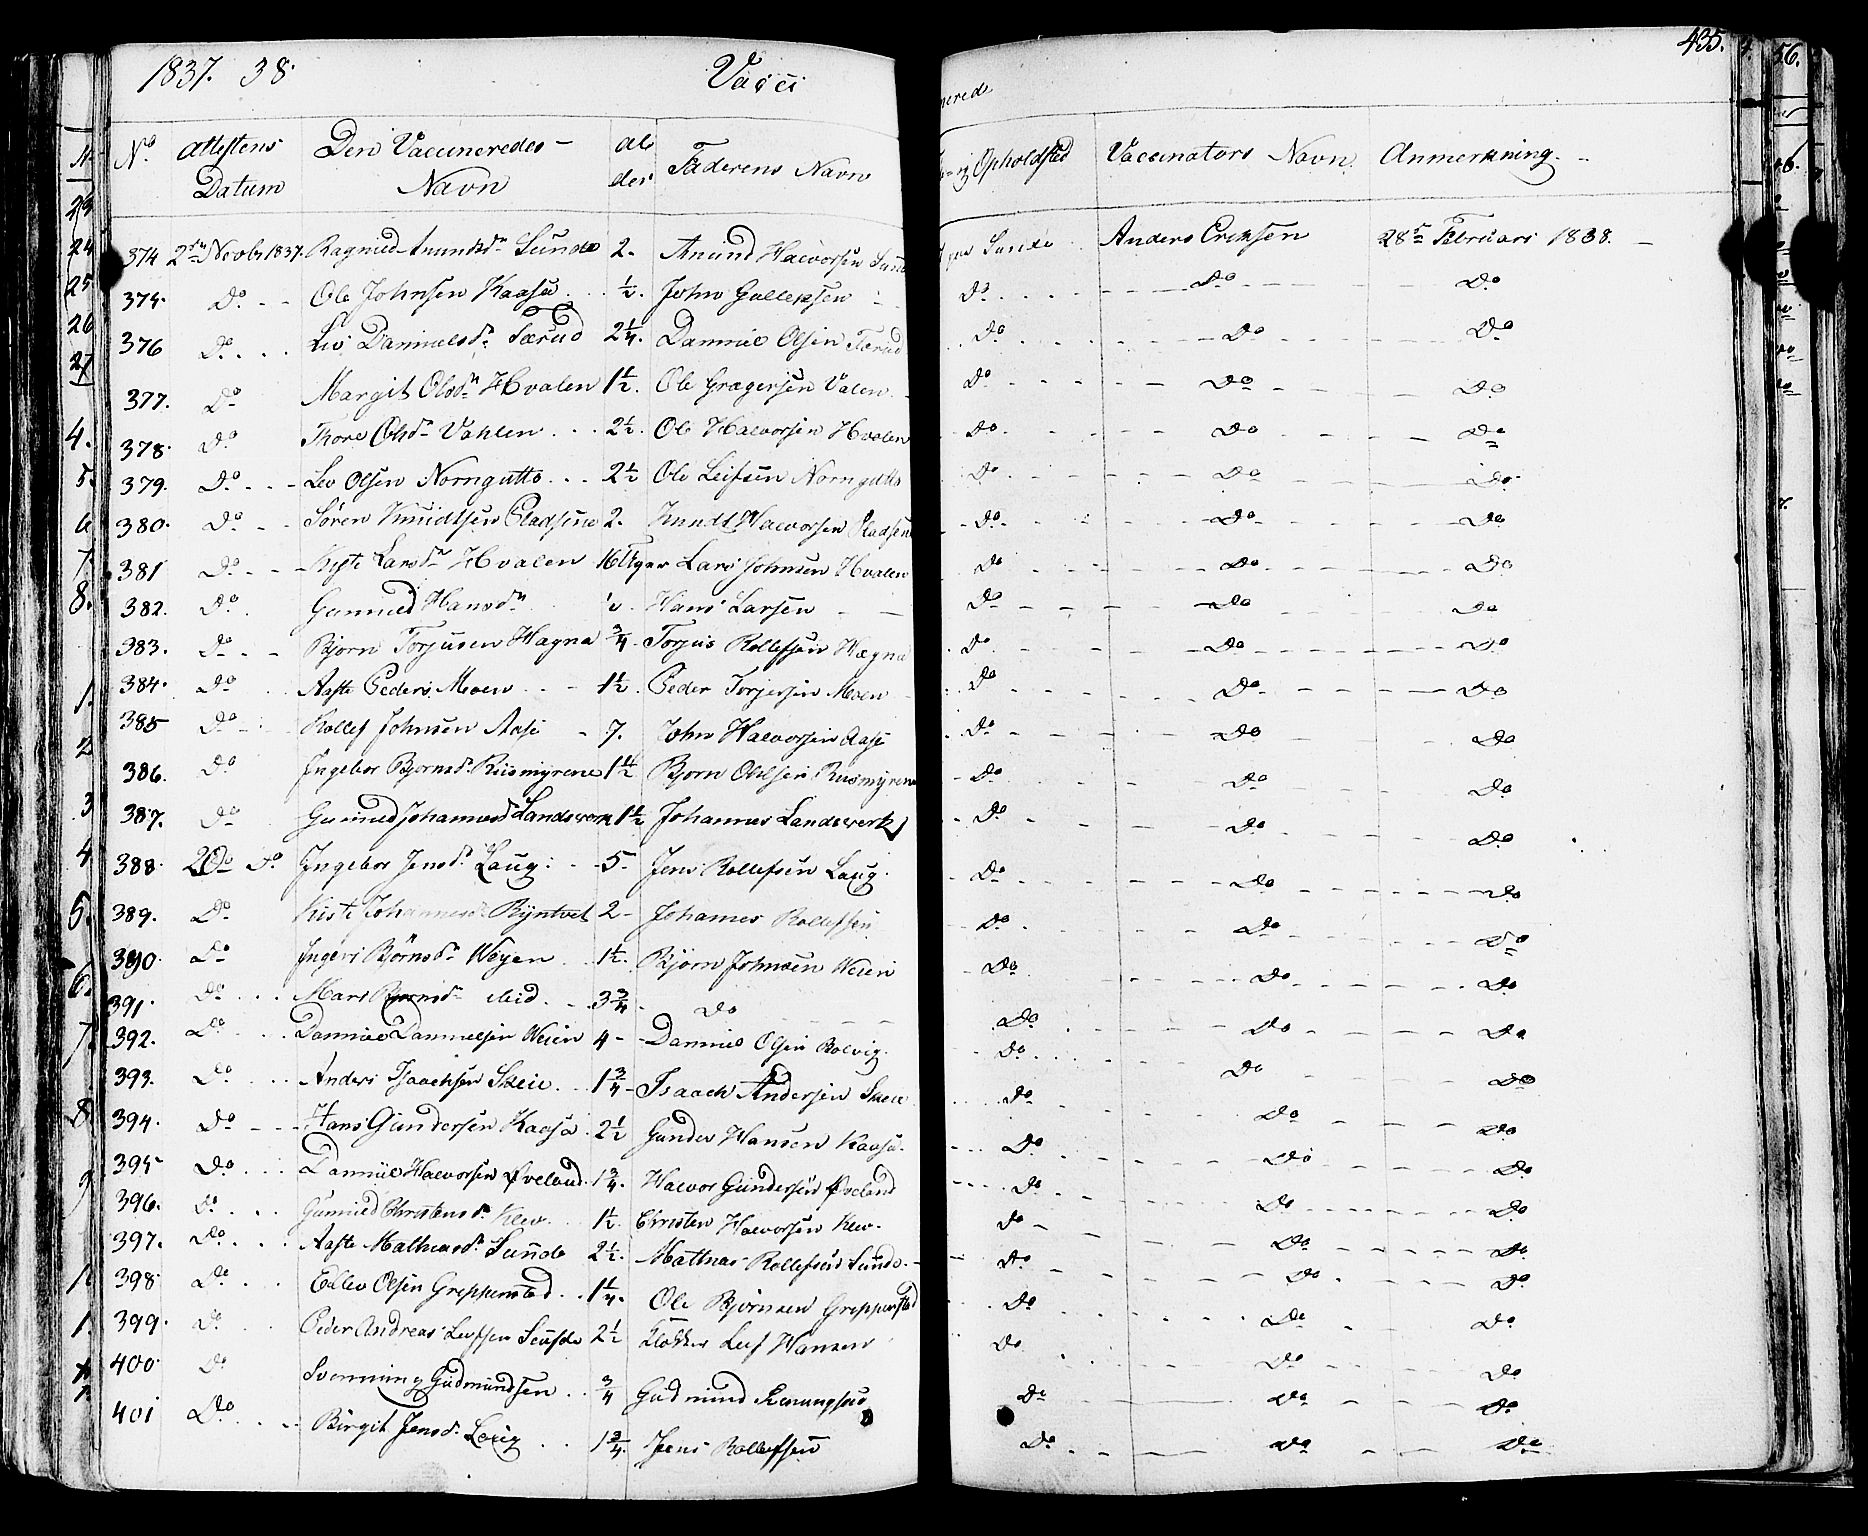 1837. 38. Vacci nerede 435.
No. Attestens Datum Den Vaccineredes Navn al der Faderens Navn Opholdsted Vaccinators Navn Anmerkning.
374 2den Novbr 1837. Ragnild Anundsdr Sunde 2. Anund Halvorsen Sunde Sunde Anders Eriksen 28de Februari 1838.
375. Do Ole Johnsen Kaasa ½. John Gulleksen Do Do Do
376 Do. Liv Danniels dr Tærud 2¼. Danniel Olsen Tærud Do Do Do
377. Do Margit Olsdr Hvalen 1½. Ole Grægersen Valen Do Do Do
378. Do Thore Ohsdr Vahlen 2½. Ole Halvorsen Hvalen Do Do Do
379. Do. Lev Olsen Norngutto 2½ Ole Leifsen Norngutto Do Do Do
380. Do Søren Knudtsen Pladsene 2. Knudt Halvorsen Pladsene Do Do Do
381 Do Kiste Larsdr Hvalen 16 Uger Lars Johnsen Hvalen Do Do Do
382. Do. Gunnild Hansdr ½. Hans Larsen Do Do Do
383. Do Bjorn Torjusen Hagna ¾. Torjus Rollefsen Hægna Do Do Do
384. Do Aaste Peders Moen 1½. Peder Torjersen Moen Do Do Do
385 Do Rollef Johnsen Aase 7. John Halvorsen Aase Do Do Do
386. Do Ingebor Bjornsdr Riismyrene 1½ Bjorn Ohlsen Rusmyrene Do Do Do
387. Do Gunnild Johannesdr Landsverk 1½ Johannes Landsverk Do Do Do
388. 20de Do Ingebor Jensdr Laug 5 Jens Rollefsen Laug. Do Do Do
389. Do Kiste Johannesdr Byntvet 2 Johannes Rollefsen Do Do Do
390. Do Ingeri Bjørnsdr Weyen 1½. Bjørn Johnsen Weien Do Do Do
391. Do Mari Bjørnsdr ibid. 3¾ Do Do Do Do
392. Do Danniel Dannielsen Weien 4 Danniel Olsen Bolvig. Do Do Do
393. Do Anders Isaachsen Skeie 1¾ Isaach Andersen Skeie Do Do Do
394. Do Hans Gundersen Kaasa 2½ Gunder Hansen Kaasa. Do Do Do
395 Do Danniel Halvorsen Øvelund. 1¾. Halvor Gundersen Øveland Do Do Do
396. Do Gunnild Christensdr Klev 1½. Christen Halvorsen Klev. Do Do Do
397. Do Aaste Mathiasdr Sunde 2½. Mathias Rollefsen Sunde. Do Do Do
398 Do Edlev Olsen Greppenstad 1¼. Ole Bjørnsen Greppenstad Do Do Do
399. Do Peder Andreas Leifsen 2½ Klokker Leif Hansen Do Do Do
400. Do Svenning Gudmundsen ¾ Gudmund Do Do Do
401 Do Birgit Jensdr Laug 1¾. Jens Rollefsen Do Do Do